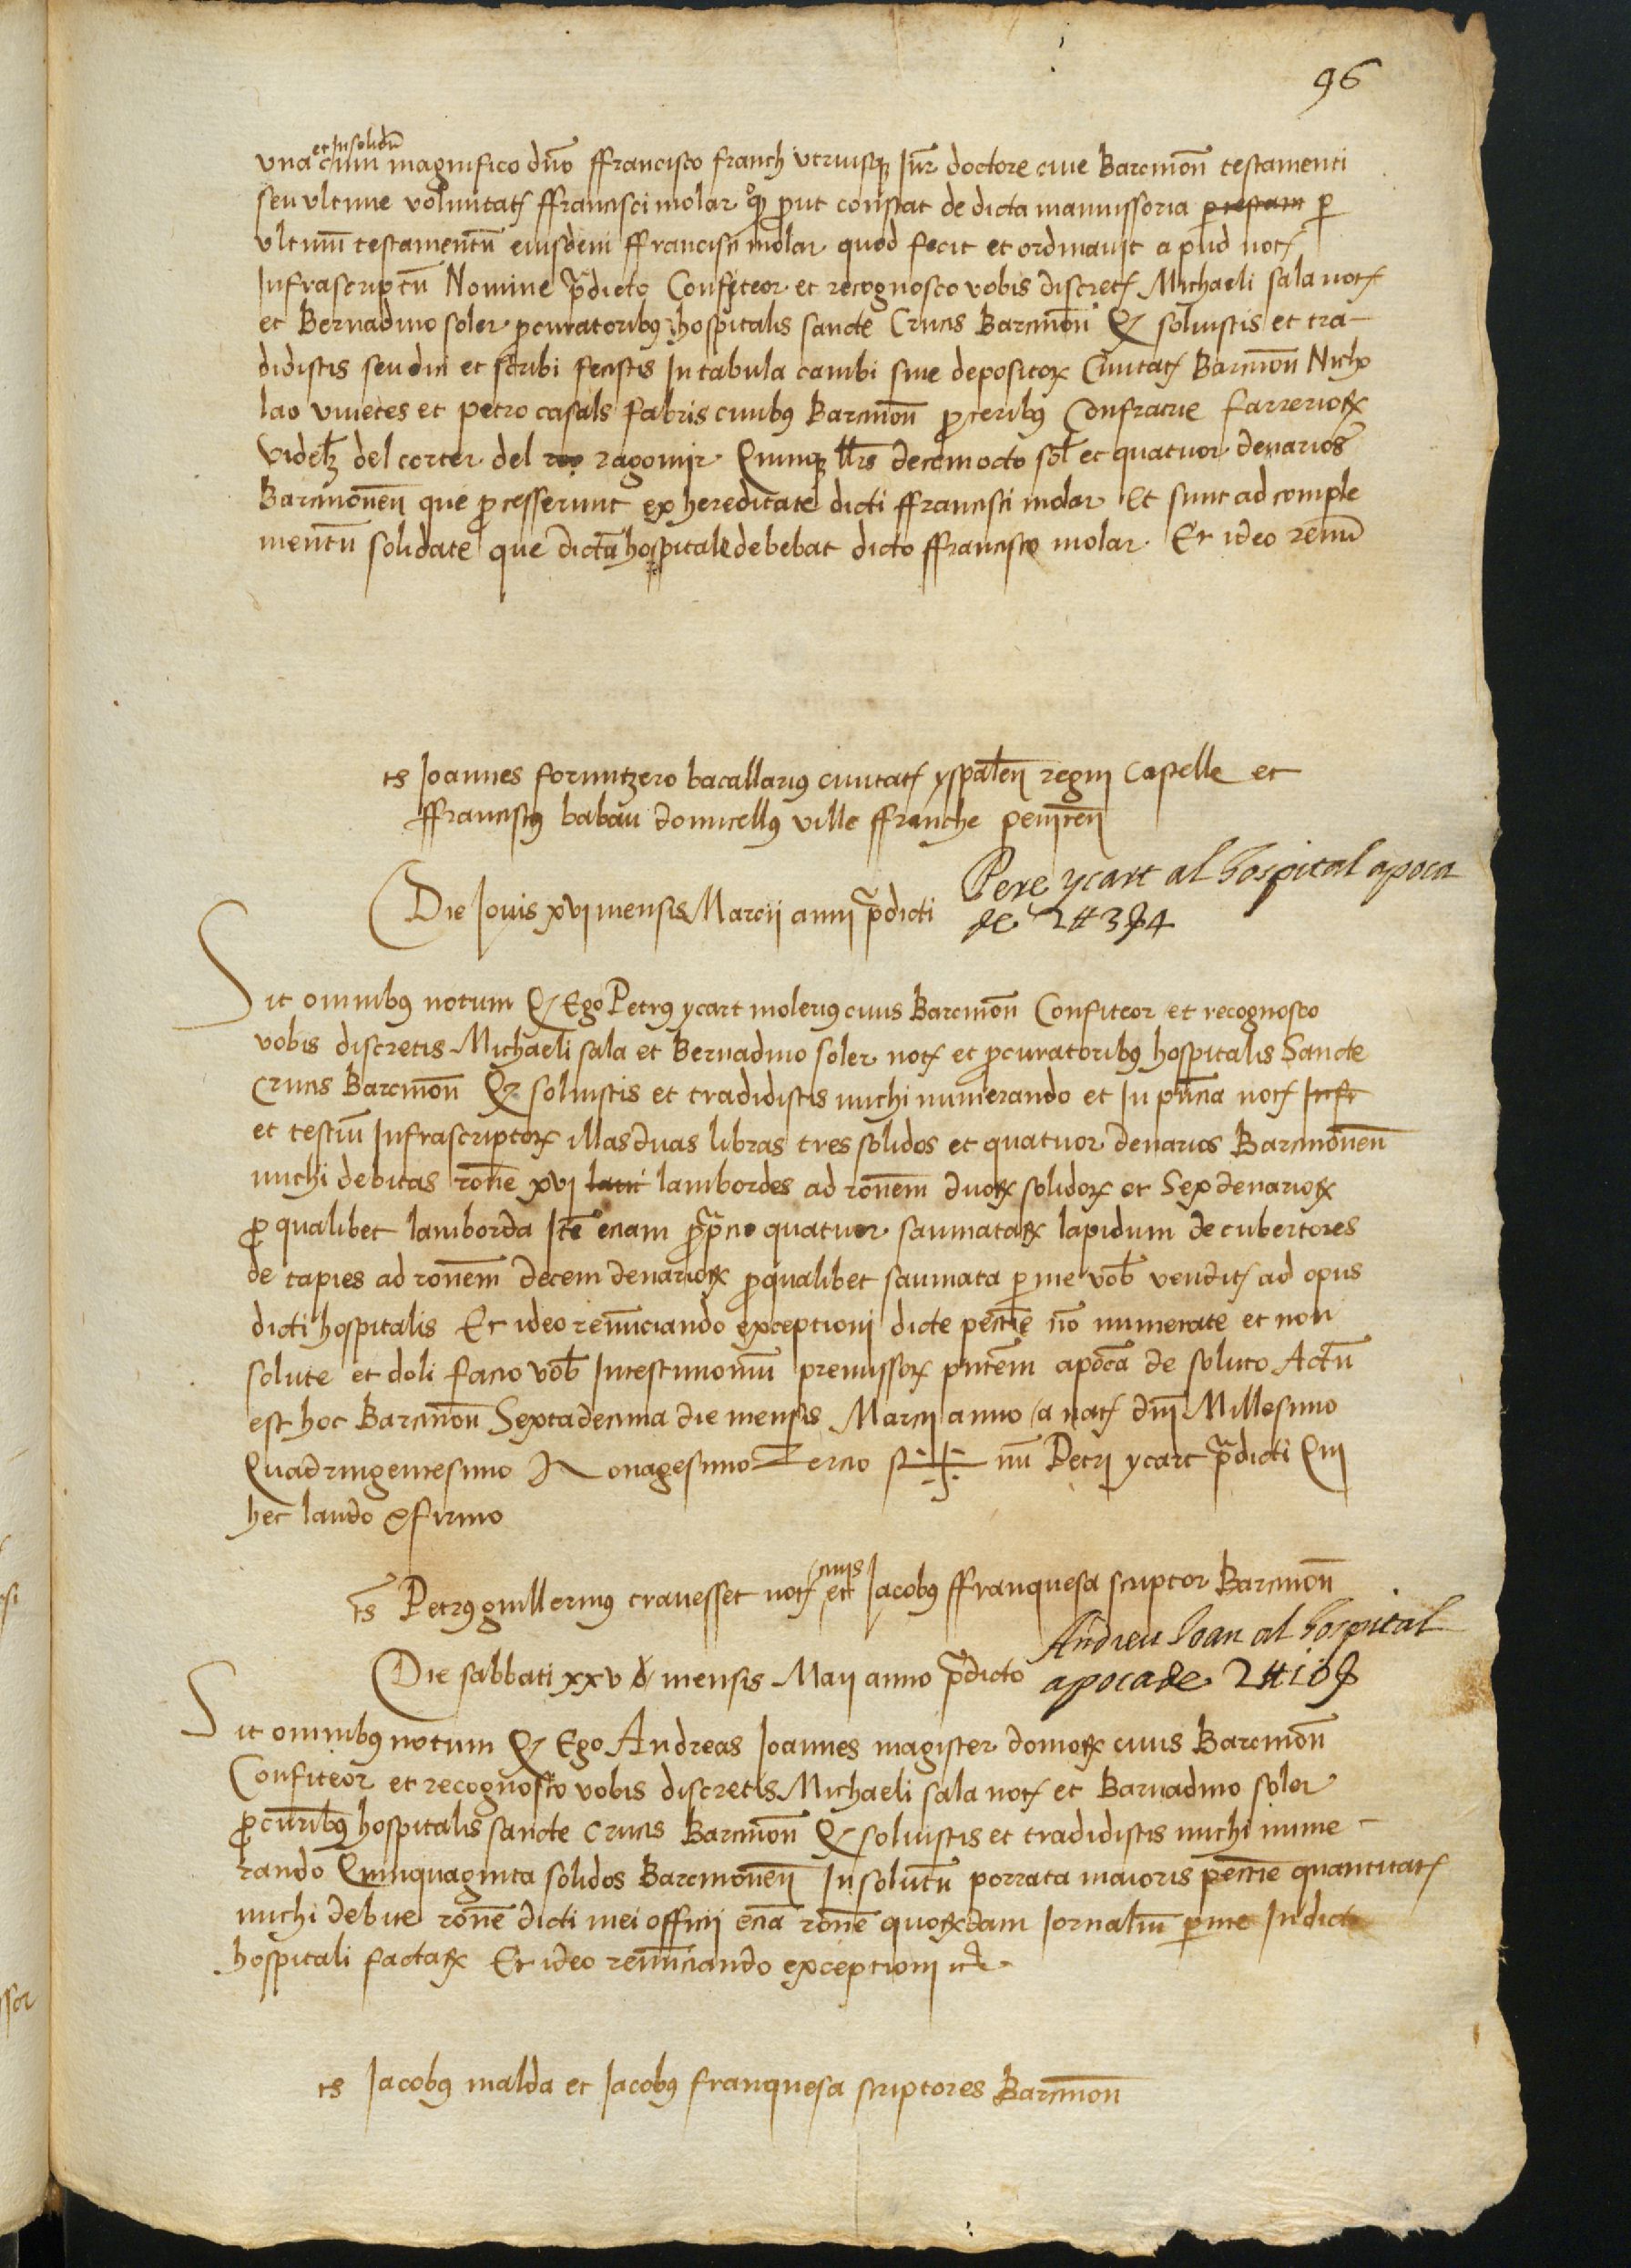 96
et Insolidũ
vna cum magnifico dño ffrancisco franch vtriusq Iur̃ doctore ciue Barcinoñ testamenti
seu vltime voluntat ffrancisci molar qº prout constat de dicta manussoria p testam p
vltimũ testamentũ eiusdem ffrancisci molar quod fecit et ordinauit apud not
Infrascriptũ Nomine pdicto Confiteor et recognosco vobis discret Michaeli sala not
et Bernadino soler pcuratoribus hospitalis sancte Crucis Barcinoñ Q soluistis et tra-
didistis seu dici et scribi fecistis In tabula cambi siue depositor Ciuitat Barcinoñ Nicho
lao viuetes et petro casals fabris ciuibus Barcinoñ proceribus Confratrie farrerior
videlz del correr del reg ragomir Quinq llrs decemocto sol et quatuor denarios
Barcinoneñ que processerunt ex hereditate dicti ffrancisci molar Et sunt ad comple
mentũ solidate que dictã hospitale debebat dicto ffrancisco molar Et ideo renũ
ts Joannes foruntzero bacallarius ciuitat yspaleñ regni Castelle et
ffranciscus babau domicellus ville ffranche peniteñ
Die Jouis xvi mensis Marcii anni pdicti
Pere ycart al hospital apoca
de 2 ₶ 3 ß 4
Sit omnibus notum Q Ego Petrus ycart molerius ciuis Barcinoñ Confiteor et recognosco
vobis discretis Michaeli sala et Bernadino soler not et pcuratoribus hospitalis Sancte
Crucis Barcinoñ Q soluistis et tradidistis michi numerando et In pñcia not Infr
et testiũ Infrascriptor illas duas libras tres solidos et quatuor denarios Barcinoneñ
michi debitas roñe xvj lam lambordes ad roñem duor solidor et Sex denarior
pro qualibet lamborda Itẽ eciam pro pcio quatuor saumatar lapidum de cubertores
de tapies ad roñem decem denarior pro qualibet saumata p me vob vendit ad opus
dicti hospitalis Et ideo renũciando exceptioni dicte peccñie nõ numerate et non
solute et doli facio vob Intestimoniũ premissor pñtem apocã de soluto Actũ
est hoc Barcinoñ Sextadecima die mensis Marcij anno a nat dñi Millesimo
Quadringentesimo Nonagesimo Tercio Sig✝num Petri ycart pdicti Qui
hec laudo & firmo
ts Petrus guillermus trauesset not ciuis et Jacobus ffranquesa scriptor Barcinoñ
Die sabbati xxv d mensis Maij anno pdicto
Andreu Joan al hospital
apoca de 2 ₶ 10 ß
Sit omnibus notum Q Ego Andreas Joannes magister domor ciuis Barcinoñ
Confiteor et recognosco vobis discretis Michaeli sala not et Barnadino soler
procuribus hospitalis sancte Crucis Barcinoñ Q soluistis et tradidistis michi nume-
rando Quinquaginta solidos Barcinoneñ In solutũ porrata maioris peccñie quantitat
michi debite roñe dicti mei officii eciã roñe quordam Jornaliũ p me In dicto
hospitali factar Et ideo renũciando exceptioni etc
ts Jacobus malda et Jacobus franquesa scriptores Barcinoñ